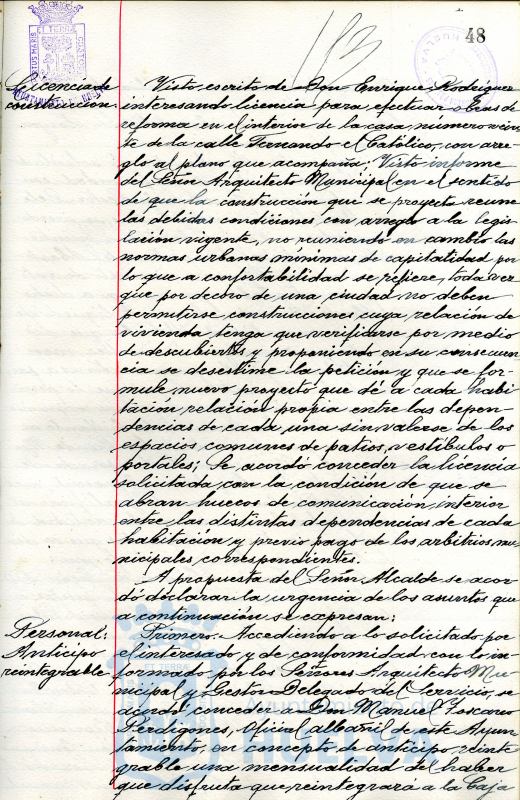 48
Licencia de
construccion.
Visto escrito de Don Enrique Rodriguez
interesando licencia para efectuar obras de
reforma en el interior de la casa, número vein-
te de la calle Fernando el Católico, con arre-
glo al plano que acompaña; Visto informe
del Señor Arquitecto Municipal en el sentido
de que la construccion que se proyecta reune
las debidas condiciones con arreglo a la legis-
lación vigente, no reuniendo en cambio las
normas urbanas mínimas de capitalidad por
lo que a confortabilidad se refiere, toda vez
que por decoro de una ciudad no deben
permitirse construcciones cuya relación de
vivienda tenga que verificarse por medio
de descubiertos y proponiendo en su consecuen-
cia se desestime la petición y que se for-
mule nuevo proyecto que dé a cada habi-
tación relación propia entre las depen-
dencias de cada una sin valerse de los
espacios comunes de patios, vestíbulos o
portales; Se acordó conceder la licencia
solicitada con la condición de que se
abran huecos de comunicación interior
entre las distintas dependencias de cada
habitación y previo pago de los arbitrios mu-
nicipales correspondientes.
A propuesta del Señor Alcalde se acor-
dó declarar la urgencia de los asuntos que
a continuación se expresan:
Personal:
Anticipo
reintegrable
Primero.- Accediendo a lo solicitado por
el interesado y de conformidad con lo in-
formado por los Señores Arquitecto Mu-
nicipal y Gestor Delegado del Servicio, se
acordó conceder a Don Manuel Toscano
Perdigones, Oficial albañil de este Ayun-
tamiento, en concepto de anticipo reinte-
grable una mensualidad del haber
que disfruta que reintegrará a la Caja
HUELVA